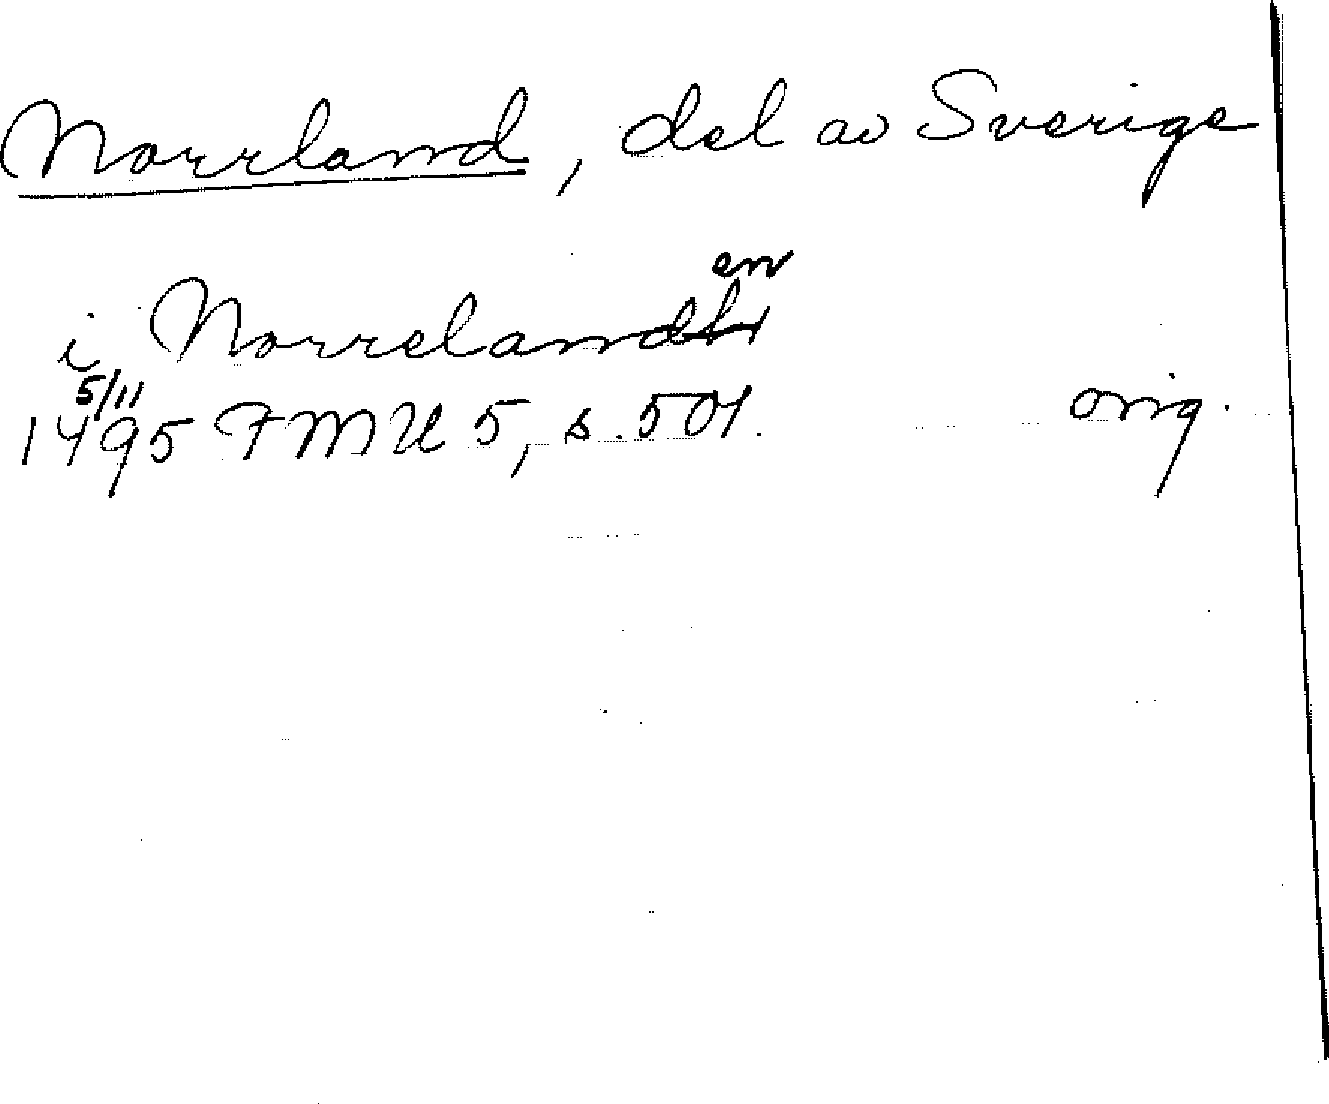 Norrland, del av Sverige
en
i Norrelandh
5/11
1495 FMU 5, s. 501. orig.